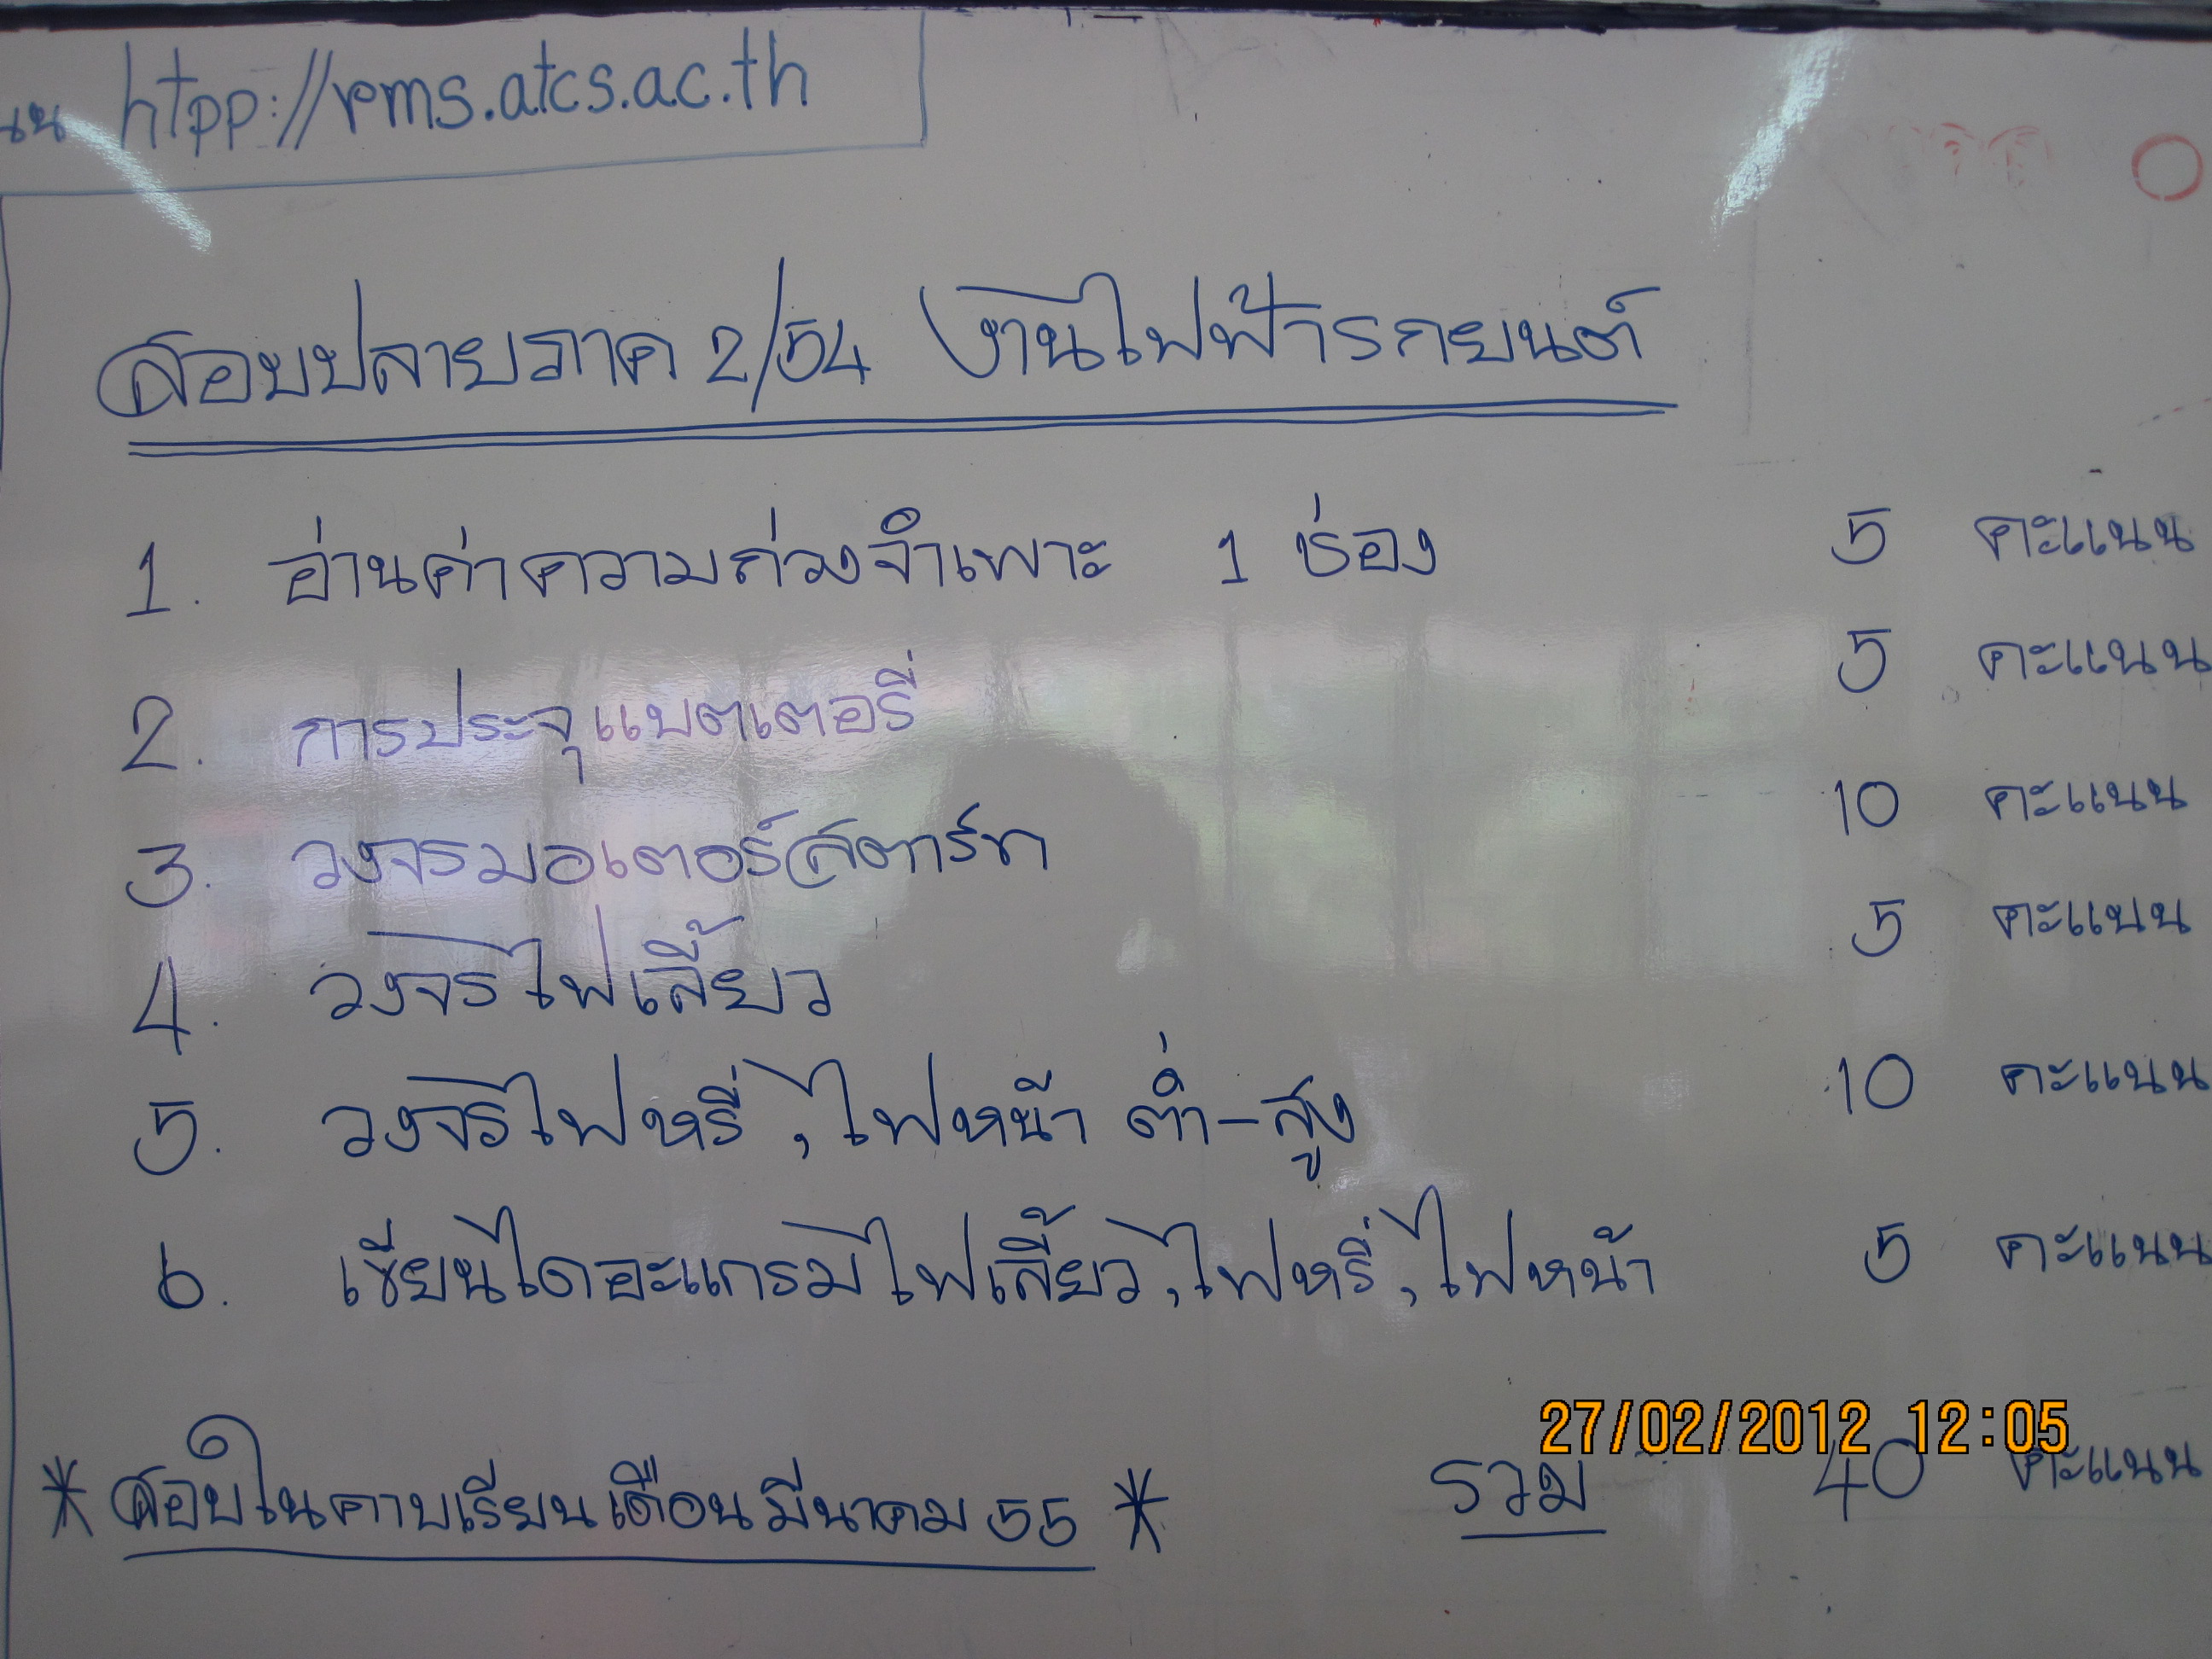 htpp://rms.atcs.ac.th
สอบปลายภาค 2/54 งานไฟฟ้ารถยนต์
1. อ่านค่าความถ่วงจำเพาะ 1 ช่อง 5 คะแนน
2. การประจุแบตเตอรี่ 5 คะแนน
3. วงจรมอเตอร์สตาร์ท 10 คะแนน
4. วงจรไฟเลี้ยว 5 คะแนน
5. วงจรไฟหรี่, ไฟหน้า ต่ำ-สูง 10 คะแนน
6. เขียนไดอะแกรมไฟเลี้ยว, ไฟหรี่, ไฟหน้า 5 คะแนน
27/02/2012 12:05
* สอบในคาบเรียนเดือนมีนาคม 55 * รวม 40 คะแนน